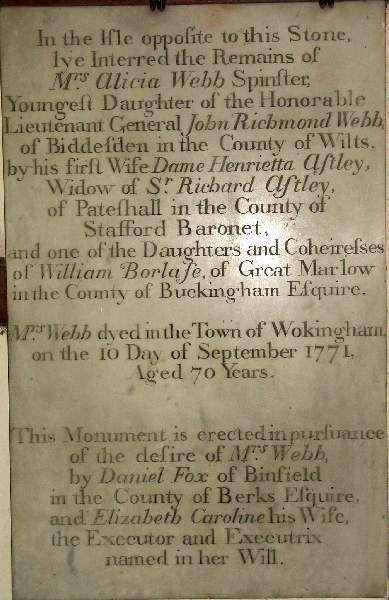 In the Iſle oppoſite to this Stone,
lye Interred the Remains of
Mrs Alicia Webb Spinſter,
Youngeſt Daughter of the Honorable
Lieutenant General John Richmond Webb,
of Biddeſden in the County of Wilts,
by his firſt Wife Dame Henrietta Aſtley,
Widow of Sr Richard Aſtley,
of Pateſhall in the County of
Stafford Baronet,
and one of the Daughters and Coheireſses
of William Borlaſe, of Great Marlow
in the County of Buckingham Eſquire.
Mrs Webb dyed in the Town of Wokingham,
on the 10 Day of September 1771,
Aged 70 Years.
This Monument is erected in purſuance
of the deſire of Mrs Webb,
by Daniel Fox of Binfield
in the County of Berks Eſquire,
and Elizabeth Caroline his Wife,
the Executor and Executrix
named in her Will.